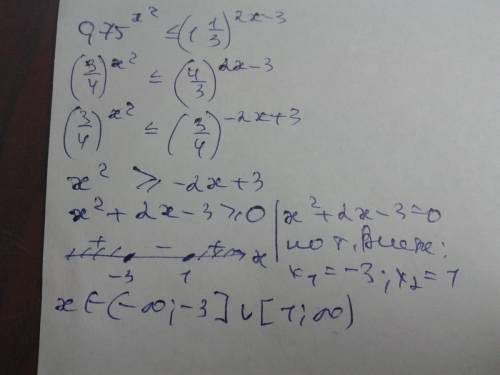 0,75^{x^2} ≤ (1 1/3)^{2x-3}
(3/4)^{x^2} ≤ (4/3)^{2x-3}
(3/4)^{x^2} ≤ (3/4)^{-2x+3}
x^2 ≥ -2x+3
x^2+2x-3≥0 | x^2+2x-3=0
по т. Виета:
x_1=-3; x_2=1
+ - + x
-3 1
x∈(-∞;-3]∪[1;∞)